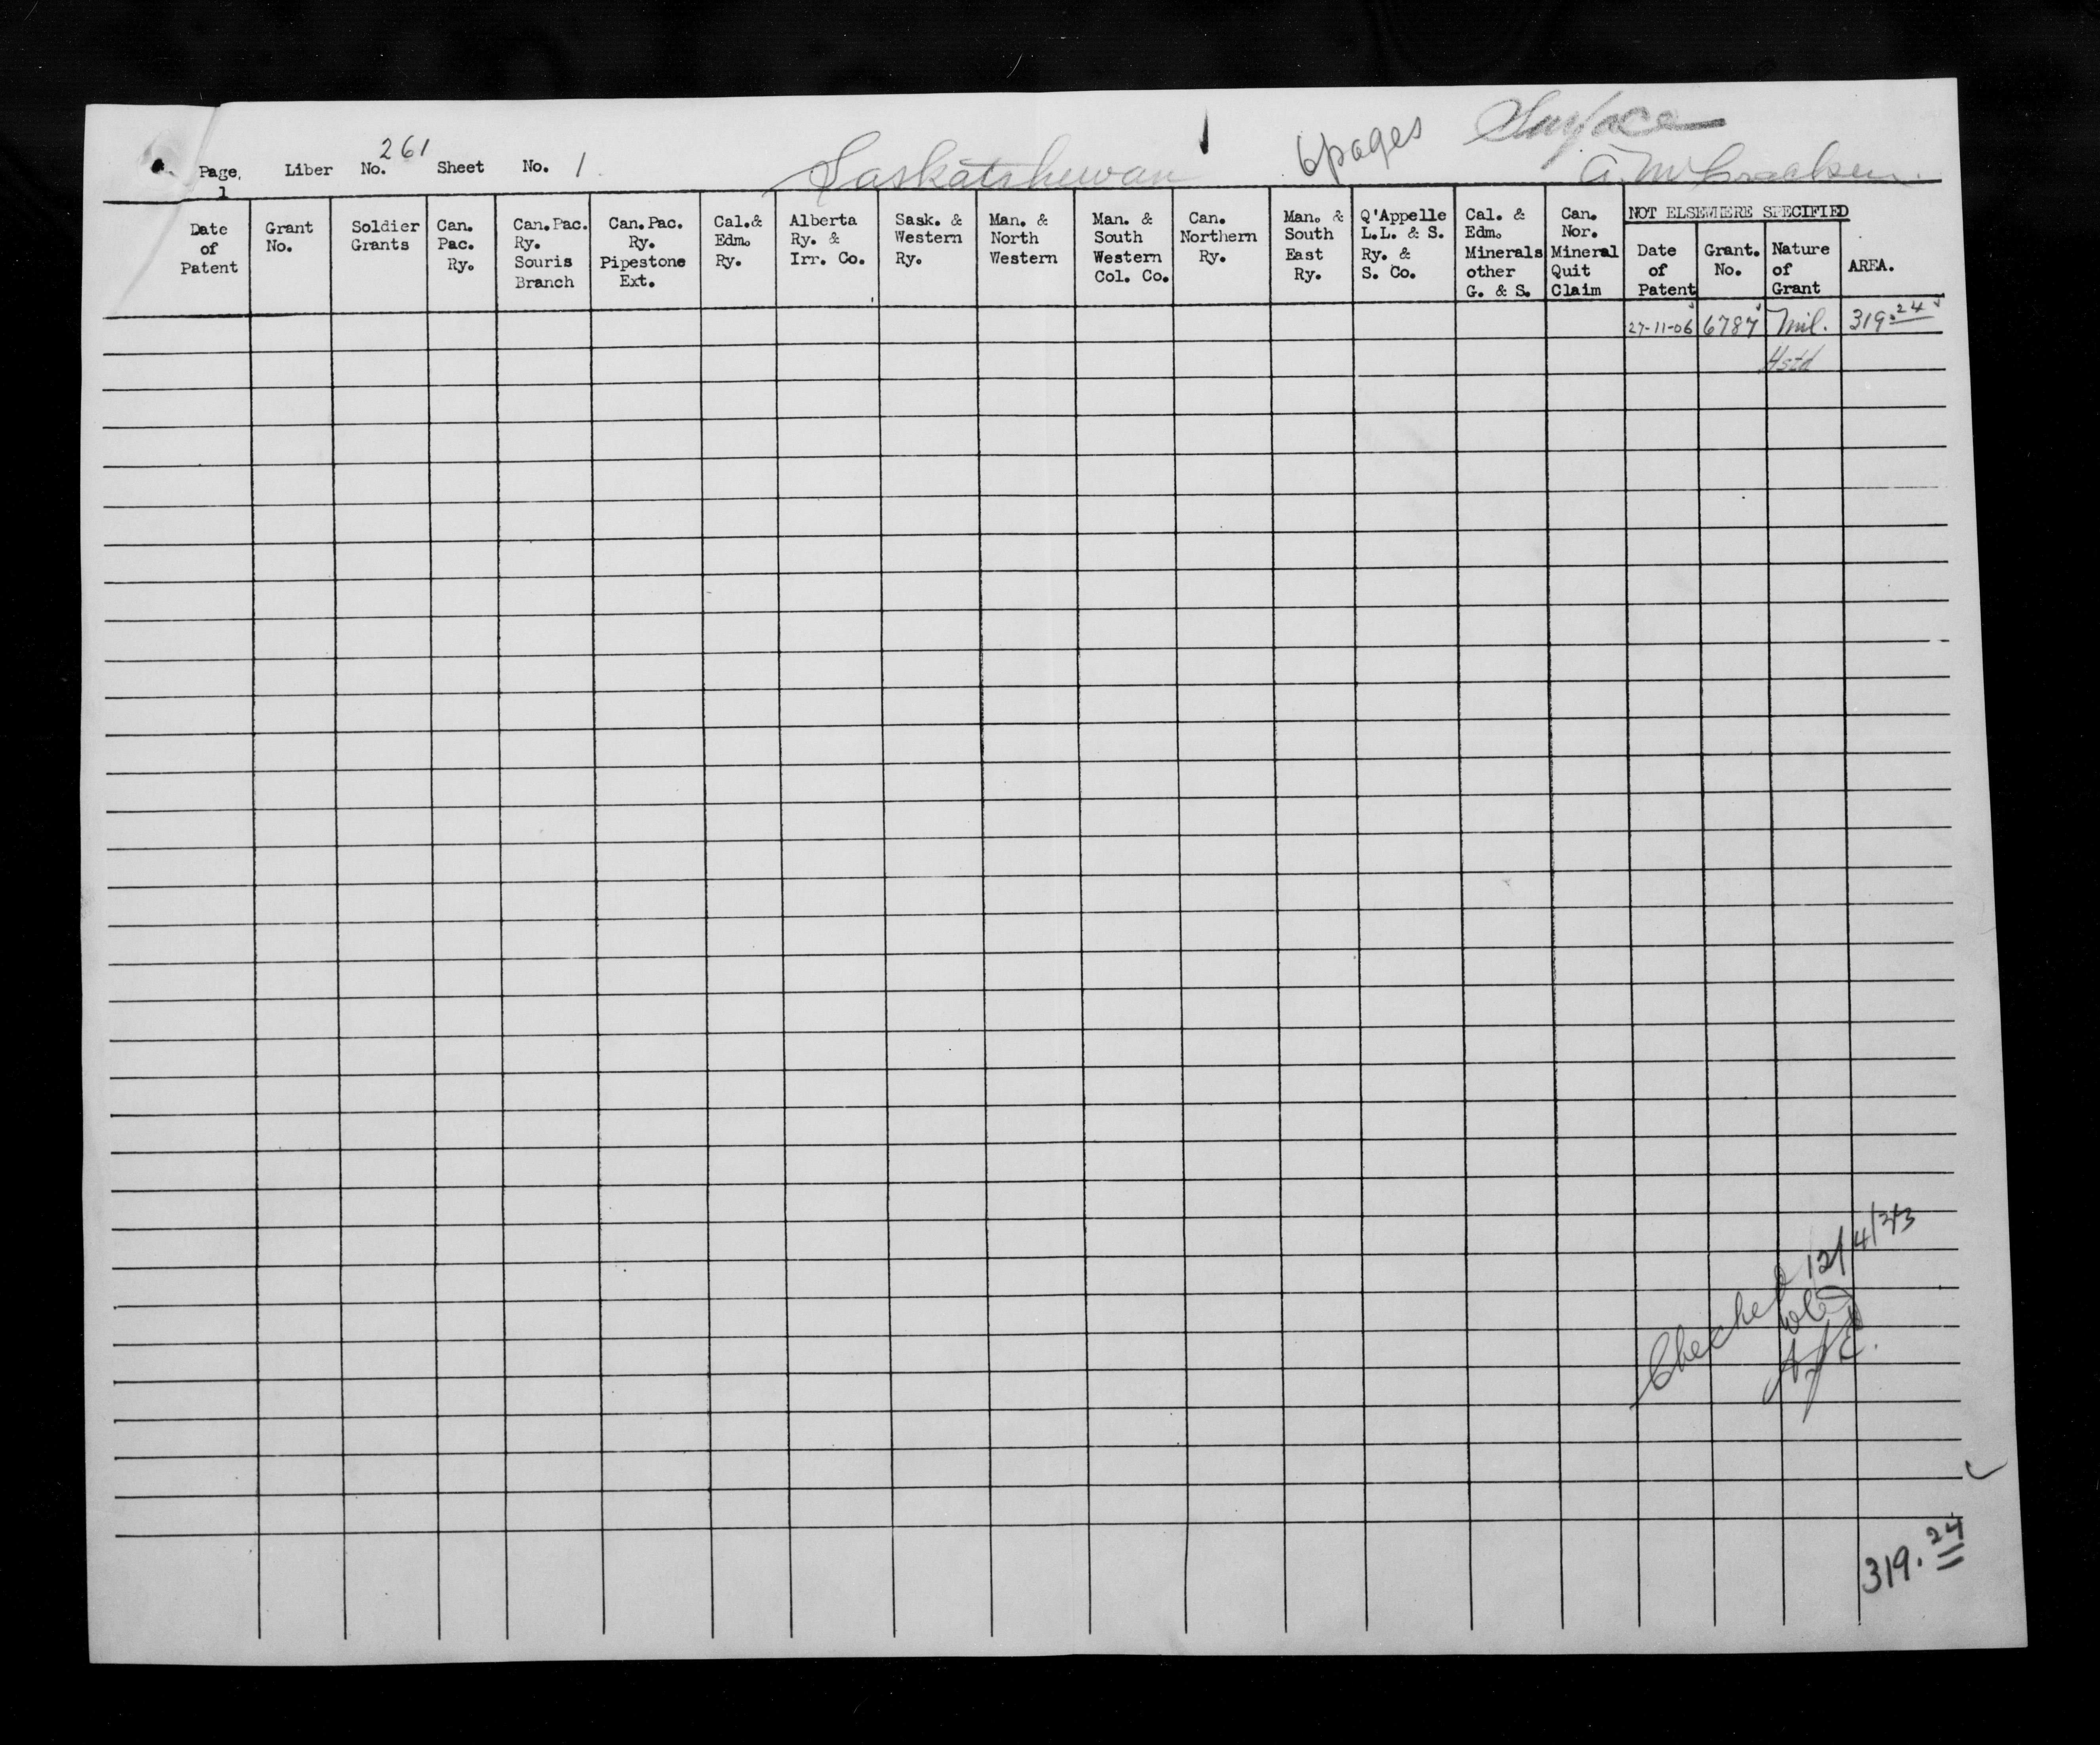 Page 1 Liber No. 261 Sheet No. 1 Saskatchewan 6 pages Surface
Date of Patent
Grant No.
Soldier Grants
Can. Pac. Ry.
Can. Pac. Ry. Souris Branch
Can. Pac. Ry. Pipestone Ext.
Cal. & Edm. Ry.
Alberta Ry. & Irr. Co.
Sask. & Western Ry.
Man. & North Western
Man. & South Western Col. Co.
Can. Northern Ry.
Man. & South East Ry.
Q'Appelle L.L. & S. Ry. & S. Co.
Cal. & Edm. Minerals other G. & S.
Can. Nor. Mineral Quit Claim
NOT ELSEWHERE SPECIFIED
Date of Patent
Grant. No.
Nature of Grant
AREA.
27-11-06 6787 Mil. 319.24
Hstd
Checked 12/4/33
319.24